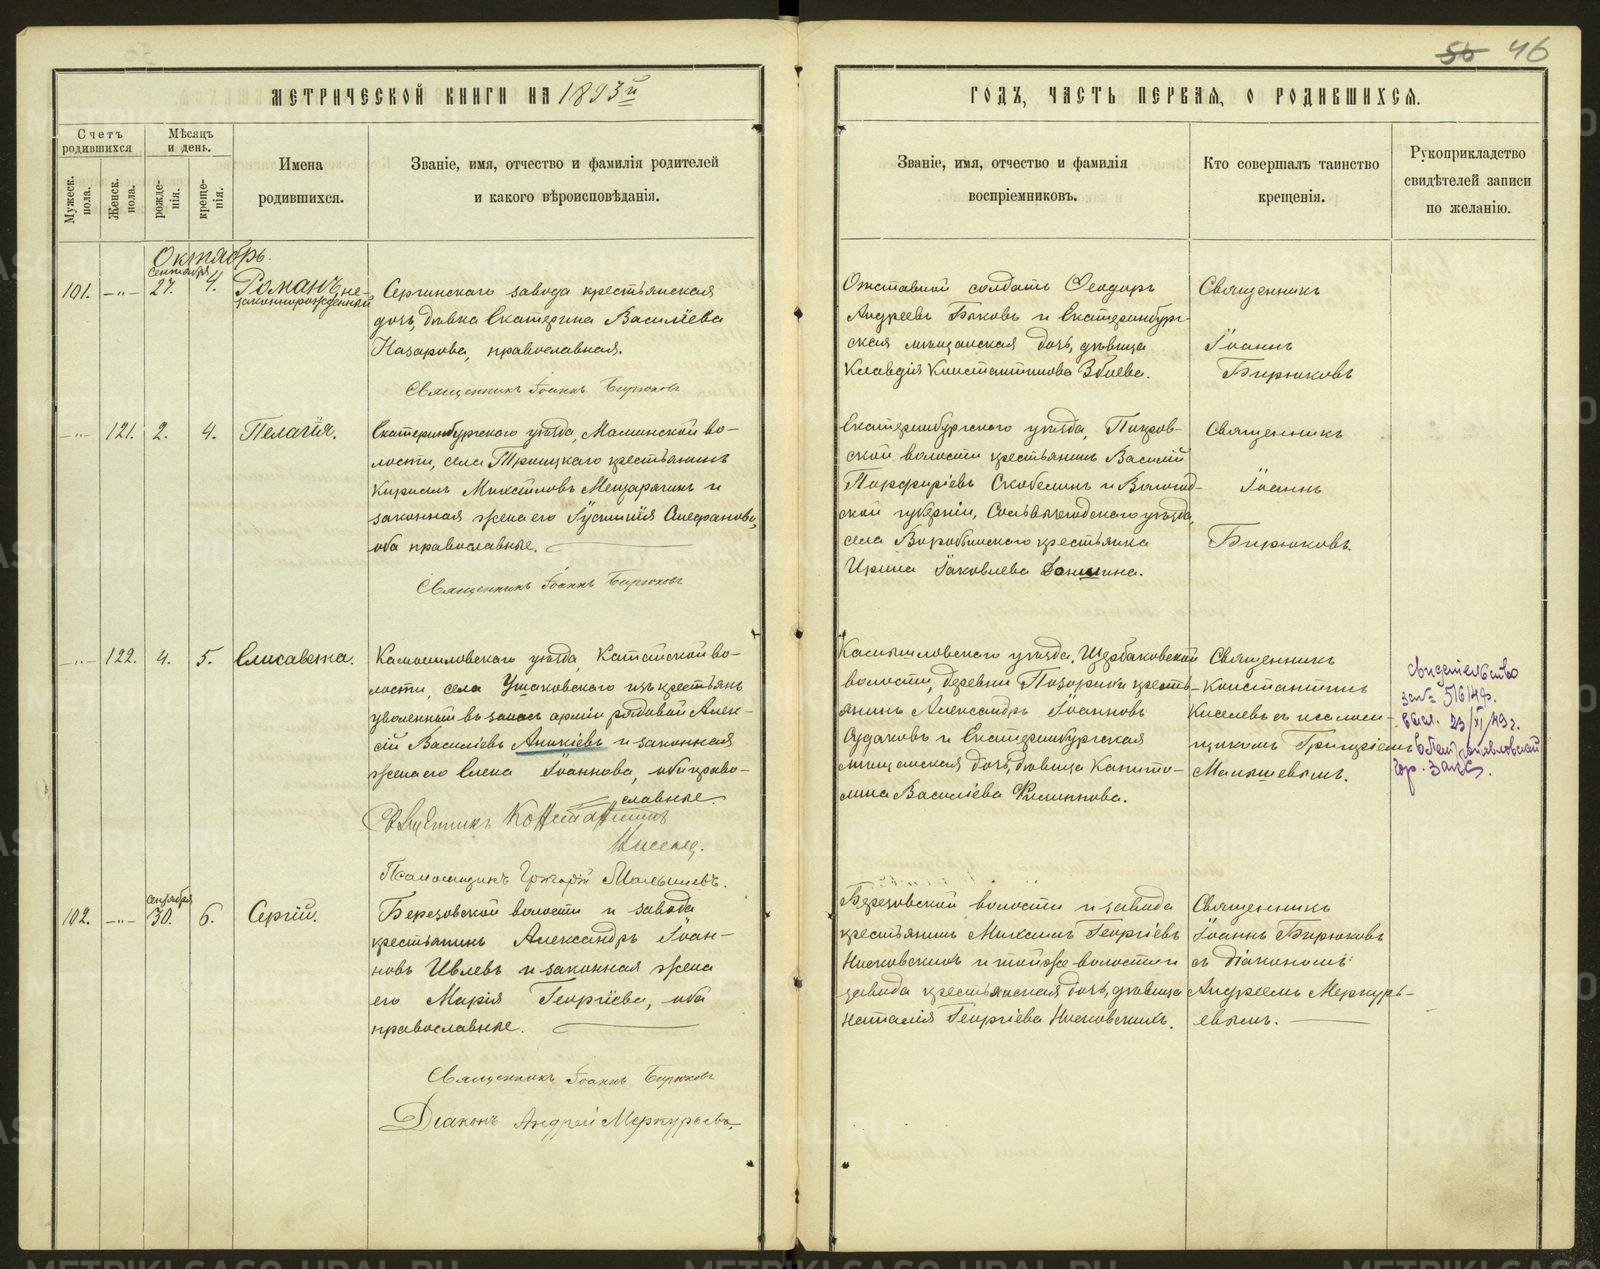 55 46
МЕТРИЧЕСКОЙ КНИГИ НА 1893й
ГОДЪ, ЧАСТЬ ПЕРВАЯ, О РОДИВШИХСЯ.
Счетъ родившихся
Мужеск. пола.
Женск. пола.
Мѣсяцъ и день.
рожде-нія.
креще-нія.
Имена
родившихся.
Званіе, имя, отчество и фамилія родителей
и какого вѣроисповѣданія.
Званіе, имя, отчество и фамилія
воспріемниковъ.
Кто совершалъ таинство
крещенія.
Рукоприкладство
свидѣтелей записи
по желанію.
Октябрь.
101. —„— Сентября 27. 4. Романъ, не-
законнорожденный
Сергинскаго завода крестьянская
дочь, дѣвка Екатерина Василіева
Назарова, православная.
Священникъ Іоаннъ Бирюковъ
Отставной солдатъ Ѳеодоръ
Андреевъ Быковъ и Екатеринбург-
ская мѣщанская дочь, дѣвица
Клавдія Константинова
Священникъ
Іоаннъ
Бирюковъ
—„— 121. 2. 4. Пелагія.
Екатеринбургскаго уѣзда, Маминской во-
лости, села Троицкаго крестьянинъ
Кириллъ Михаиловъ Мещерягинъ и
законная жена его Іустинія
оба православные.
Священникъ Іоаннъ Бирюковъ
Екатеринбургскаго уѣзда, Покров-
ской волости крестьянинъ Василій
Порфиріевъ Скобелинъ и Вологод-
ской губерніи, Сольвычегодскаго уѣзда,
села крестьянка
Ирина Іаковлева
Священникъ
Іоаннъ
Бирюковъ.
—„— 122. 4. 5. Елисавета.
Камышловскаго уѣзда, Катайской во-
лости, села Ушаковскаго изъ крестьянъ
уволенный въ запасъ арміи рядовой Алек-
сій Василіевъ Аникіевъ и законная
жена его Елена Іоаннова, оба право-
славные.
Священникъ Константинъ
Киселевъ.
Псаломщикъ Григорій Малышевъ.
Камышловскаго уѣзда, Щербаковской
волости, деревни кресть-
янинъ Александръ Іоанновъ
и Екатеринбургская
мѣщанская дочь, дѣвица Капито-
лина Василіева Филиппова.
Священникъ
Константинъ
Киселевъ съ псалом-
щикомъ Григоріемъ
Малышевымъ.
Свидетельство
за № 516/49г.
выд. 23/XI/49г.
Петропавловский
Гор. Загс.
102. —„— Сентября 30. 6. Сергій.
Березовской волости и завода
крестьянинъ Александръ Іоан-
новъ Ивлевъ и законная жена
его Марія Георгіева, оба
православные.
Священникъ Іоаннъ Бирюковъ
Діаконъ Андрей Меркурьевъ
Березовской волости и завода
крестьянинъ Михаилъ Георгіевъ
и той же волости и
завода крестьянская дочь, дѣвица
Наталія Георгіева
Священникъ
Іоаннъ Бирюковъ
съ діакономъ
Андреемъ Меркурь-
евымъ.
METRIKI.GASO-URAL.RU